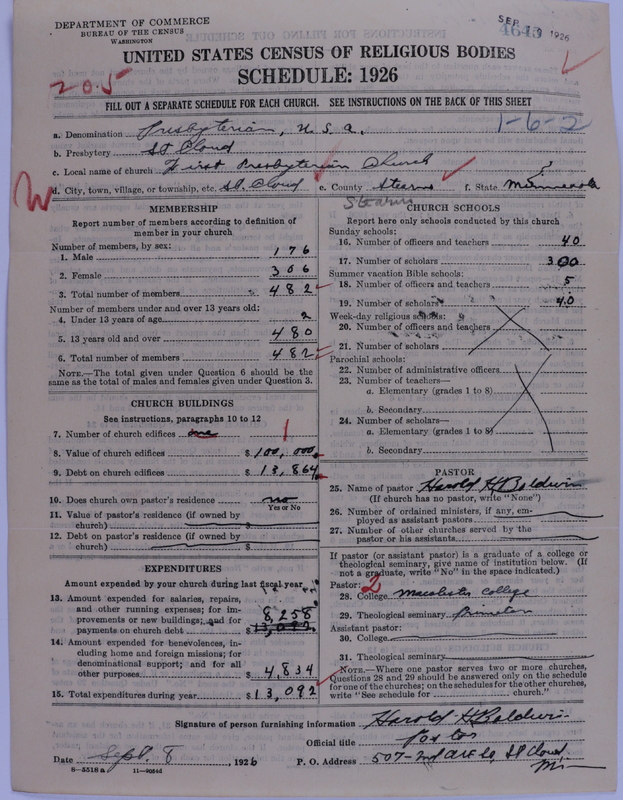 DEPARTMENT OF COMMERCE
BUREAU OF THE CENSUS
WASHINGTON
SEP 9 1926
4643
UNITED STATES CENSUS OF RELIGIOUS BODIES
SCHEDULE: 1926
205
FILL OUT A SEPARATE SCHEDULE FOR EACH CHURCH. SEE INSTRUCTIONS ON THE BACK OF THIS SHEET
1-6-2
a. Denomination Presbyterian, U.S.A.
b. Presbytery St Cloud
c. Local name of church First Presbyterian Church
d. City, town, village, or township, etc. St. Cloud e. County Stearns f. State Minnesota
W
Stearns
MEMBERSHIP
Report number of members according to definition of member in your church
Number of members, by sex:
1. Male 176
2. Female 306
3. Total number of members 482
Number of members under and over 13 years old:
4. Under 13 years of age 2
5. 13 years old and over 480
6. Total number of members 482
NOTE.—The total given under Question 6 should be
same as the total of males and females given under Question 3.
CHURCH BUILDINGS
See instructions, paragraphs 10 to 12
7. Number of church edifices one 1
8. Value of church edifices $100,000.
9. Debt on church edifices $13,864.
10. Does church own pastor's residence no
Yes or No
11. Value of pastor's residence (if owned by
church) $
12. Debt on pastor's residence (if owned by
church) $
EXPENDITURES
Amount expended by your church during last fiscal year
13. Amount expended for salaries, repairs,
and other running expenses; for im-
provements or new buildings; and for
payments on church debt $ 8,258
13,092.
14. Amount expended for benevolences, in-
cluding home and foreign missions; for
denominational support; and for all
other purposes. $4,834
15. Total expenditures during year $13,092
CHURCH SCHOOLS
Report here only schools conducted by this church
Sunday schools:
16. Number of officers and teachers 40
17. Number of scholars 300
Summer vacation Bible schools:
18. Number of officers and teachers 5
19. Number of scholars 40
Week-day religious schools:
20. Number of officers and teachers
21. Number of scholars
Parochial schools:
22. Number of administrative officers
23. Number of teachers—
a. Elementary (grades 1 to 8)
b. Secondary
24. Number of scholars—
a. Elementary (grades 1 to 8)
b. Secondary
PASTOR
25. Name of pastor Harold H Baldwin
(If church has no pastor, write "None")
26. Number of ordained ministers, if any, em-
ployed as assistant pastors
27. Number of other churches served by the
pastor or his assistants
If pastor (or assistant pastor) is a graduate of a college or
theological seminary, give name of institution below. (If
not a graduate, write "No" in the space indicated.)
Pastor: 2
28. College Macalester College
29. Theological seminary Princeton
Assistant pastor:
30. College
31. Theological seminary
NOTE.—Where one pastor serves two or more churches,
Questions 28 and 29 should be answered only on the schedule
for one of the churches; on the schedules for the other churches,
write "See schedule for church."
Signature of person furnishing information Harold H Baldwin
Official title Pastor
Date Sept. 8, 1926 P. O. Address 507-2nd Ave So, St Cloud
Mi
8—5518 a 11—9054d